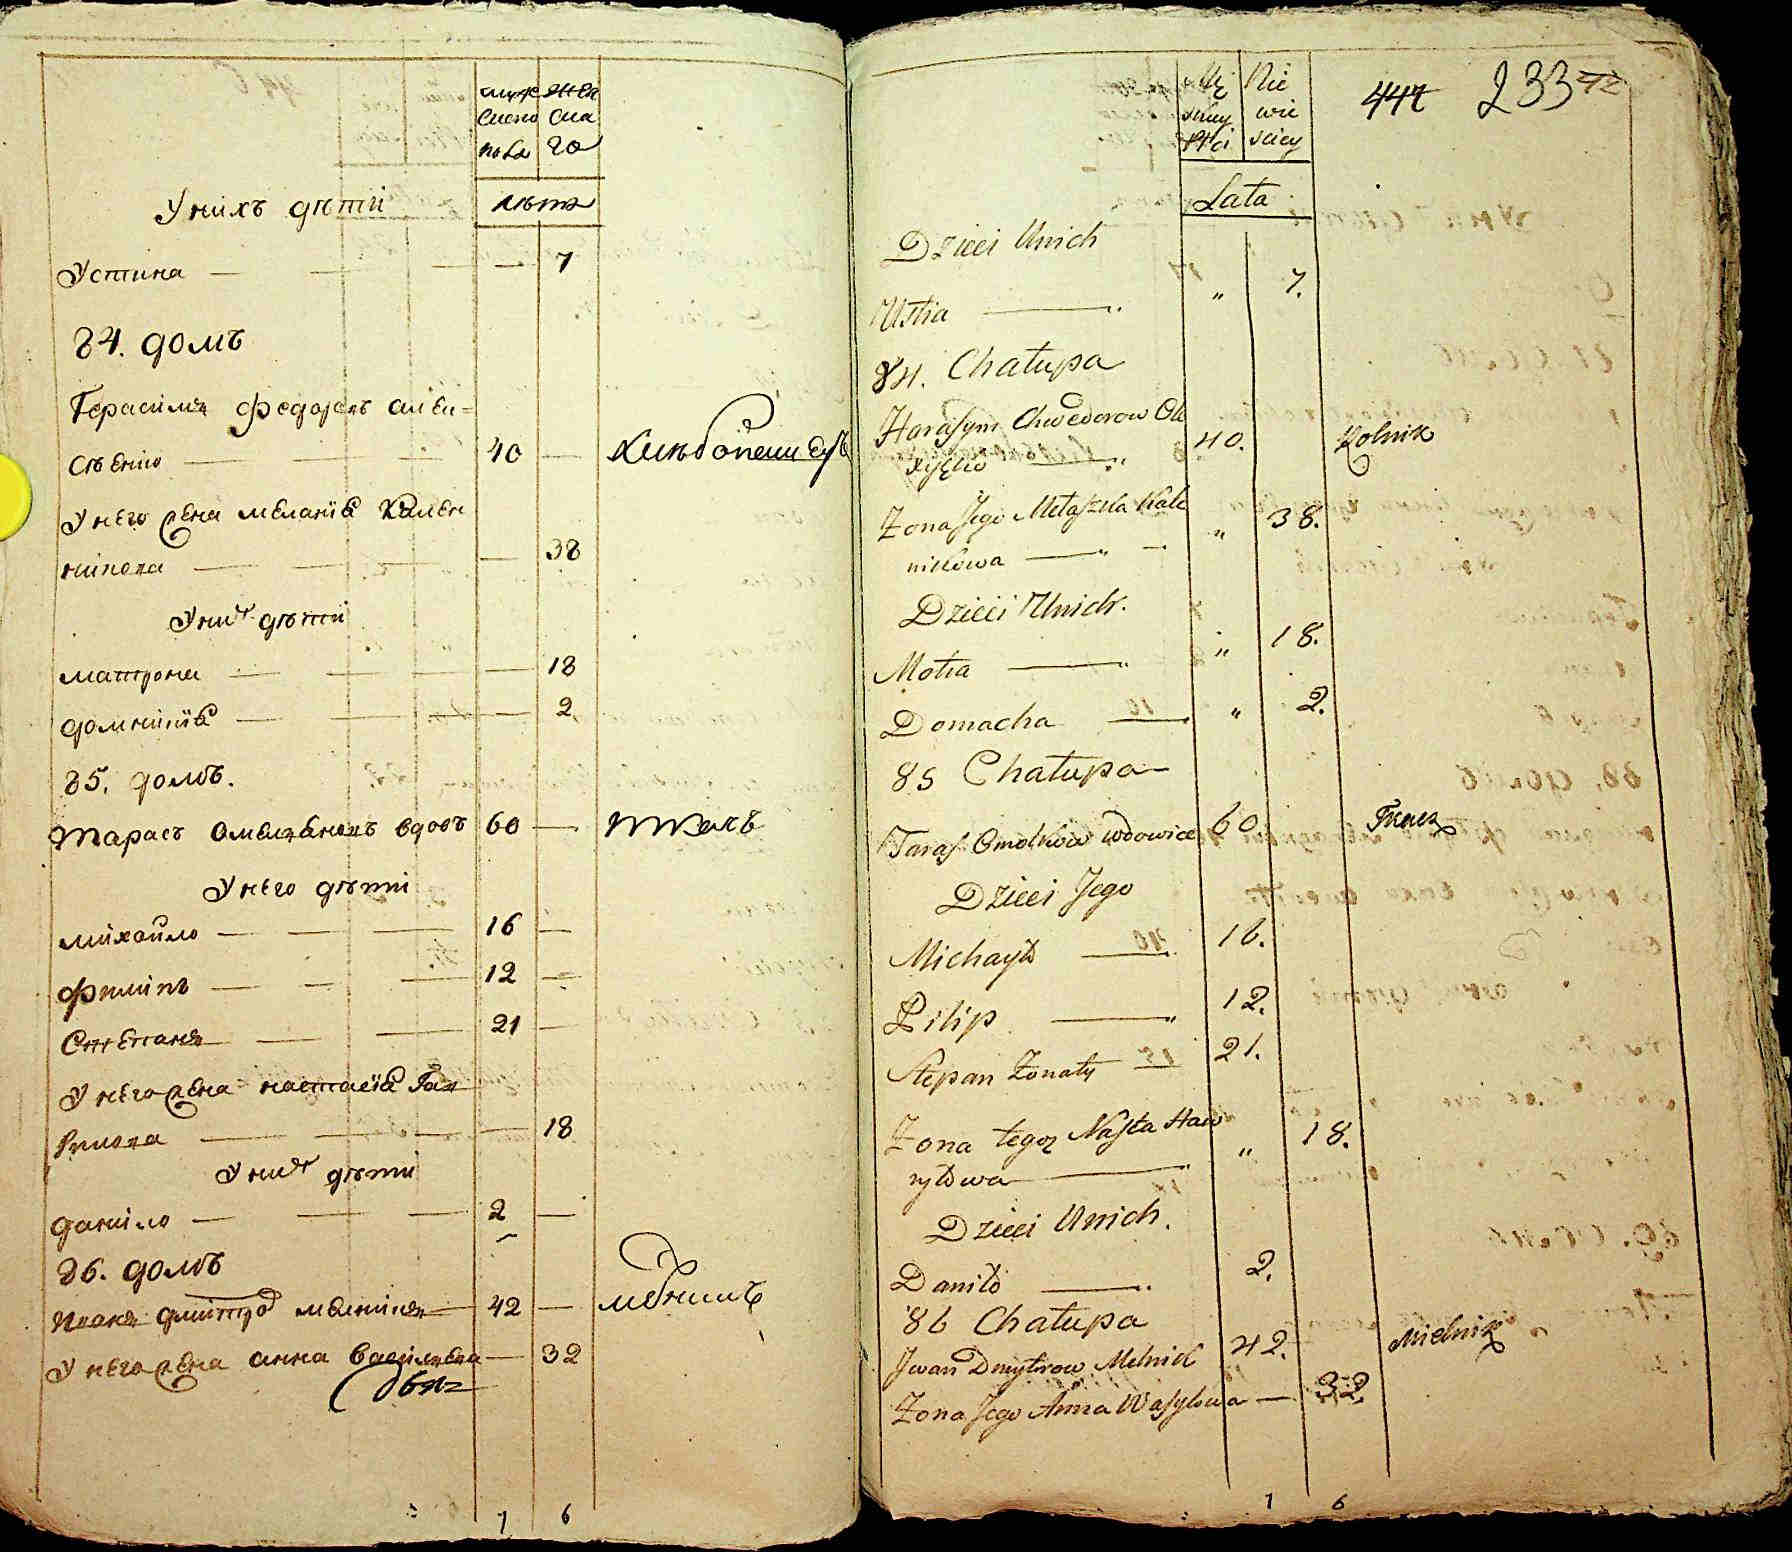 мужеска женска
пола го
лѣта
У нихъ дѣти
Устина — — — — 7
84. домъ
Герасимъ Федоровъ Олек=
сѣенко — — 40 — хлѣбопашецъ
У него жена Меланїя Калѣн
никова — — — — 38
У них дѣти
Матрона — — — — 18
Домникїя — — — — 2
85. домъ.
Тарасъ Омеляновъ вдовъ 60 — ткачъ
У него дѣти
Михайло — — — 16 —
Филипъ — — — 12 —
Степанъ — — 21 —
У него жена Настасїя Гав
рилова — — — — 18
У них дѣти
Данило — — — 2 —
86. домъ
Иванъ Дмитров Мелникъ — 42 — мелникъ
У него жена Анна Василева — 32
7 6
447 233
Mę Nie
skiey wie
płci sciey
Lata
Dzieci Unich
Ustia — " 7.
84. Chałupa
Harasym Chwedorow Ole
xyęko — " 40. Rolnik
Zona Jego Mełaszka Kale
nikowa — " — " 38.
Dzieci Unich.
Motra — " " 18.
Domacha — " 2.
85 Chałupa
Taras Omelkow wdowiec 60. Tkacz
Dzieci Jego
Michayło — 16.
Pilip — " 12.
Stepan Zonaty — 21.
Zona tegoz Nasta Haw
ryłowa — " " 18.
Dzieci Unich.
Daniło — 2.
86 Chałupa
Jwan Dmytrow Melnick 42. Mielnik
Zona Jego Anna Wasylowa — 32.
7 6